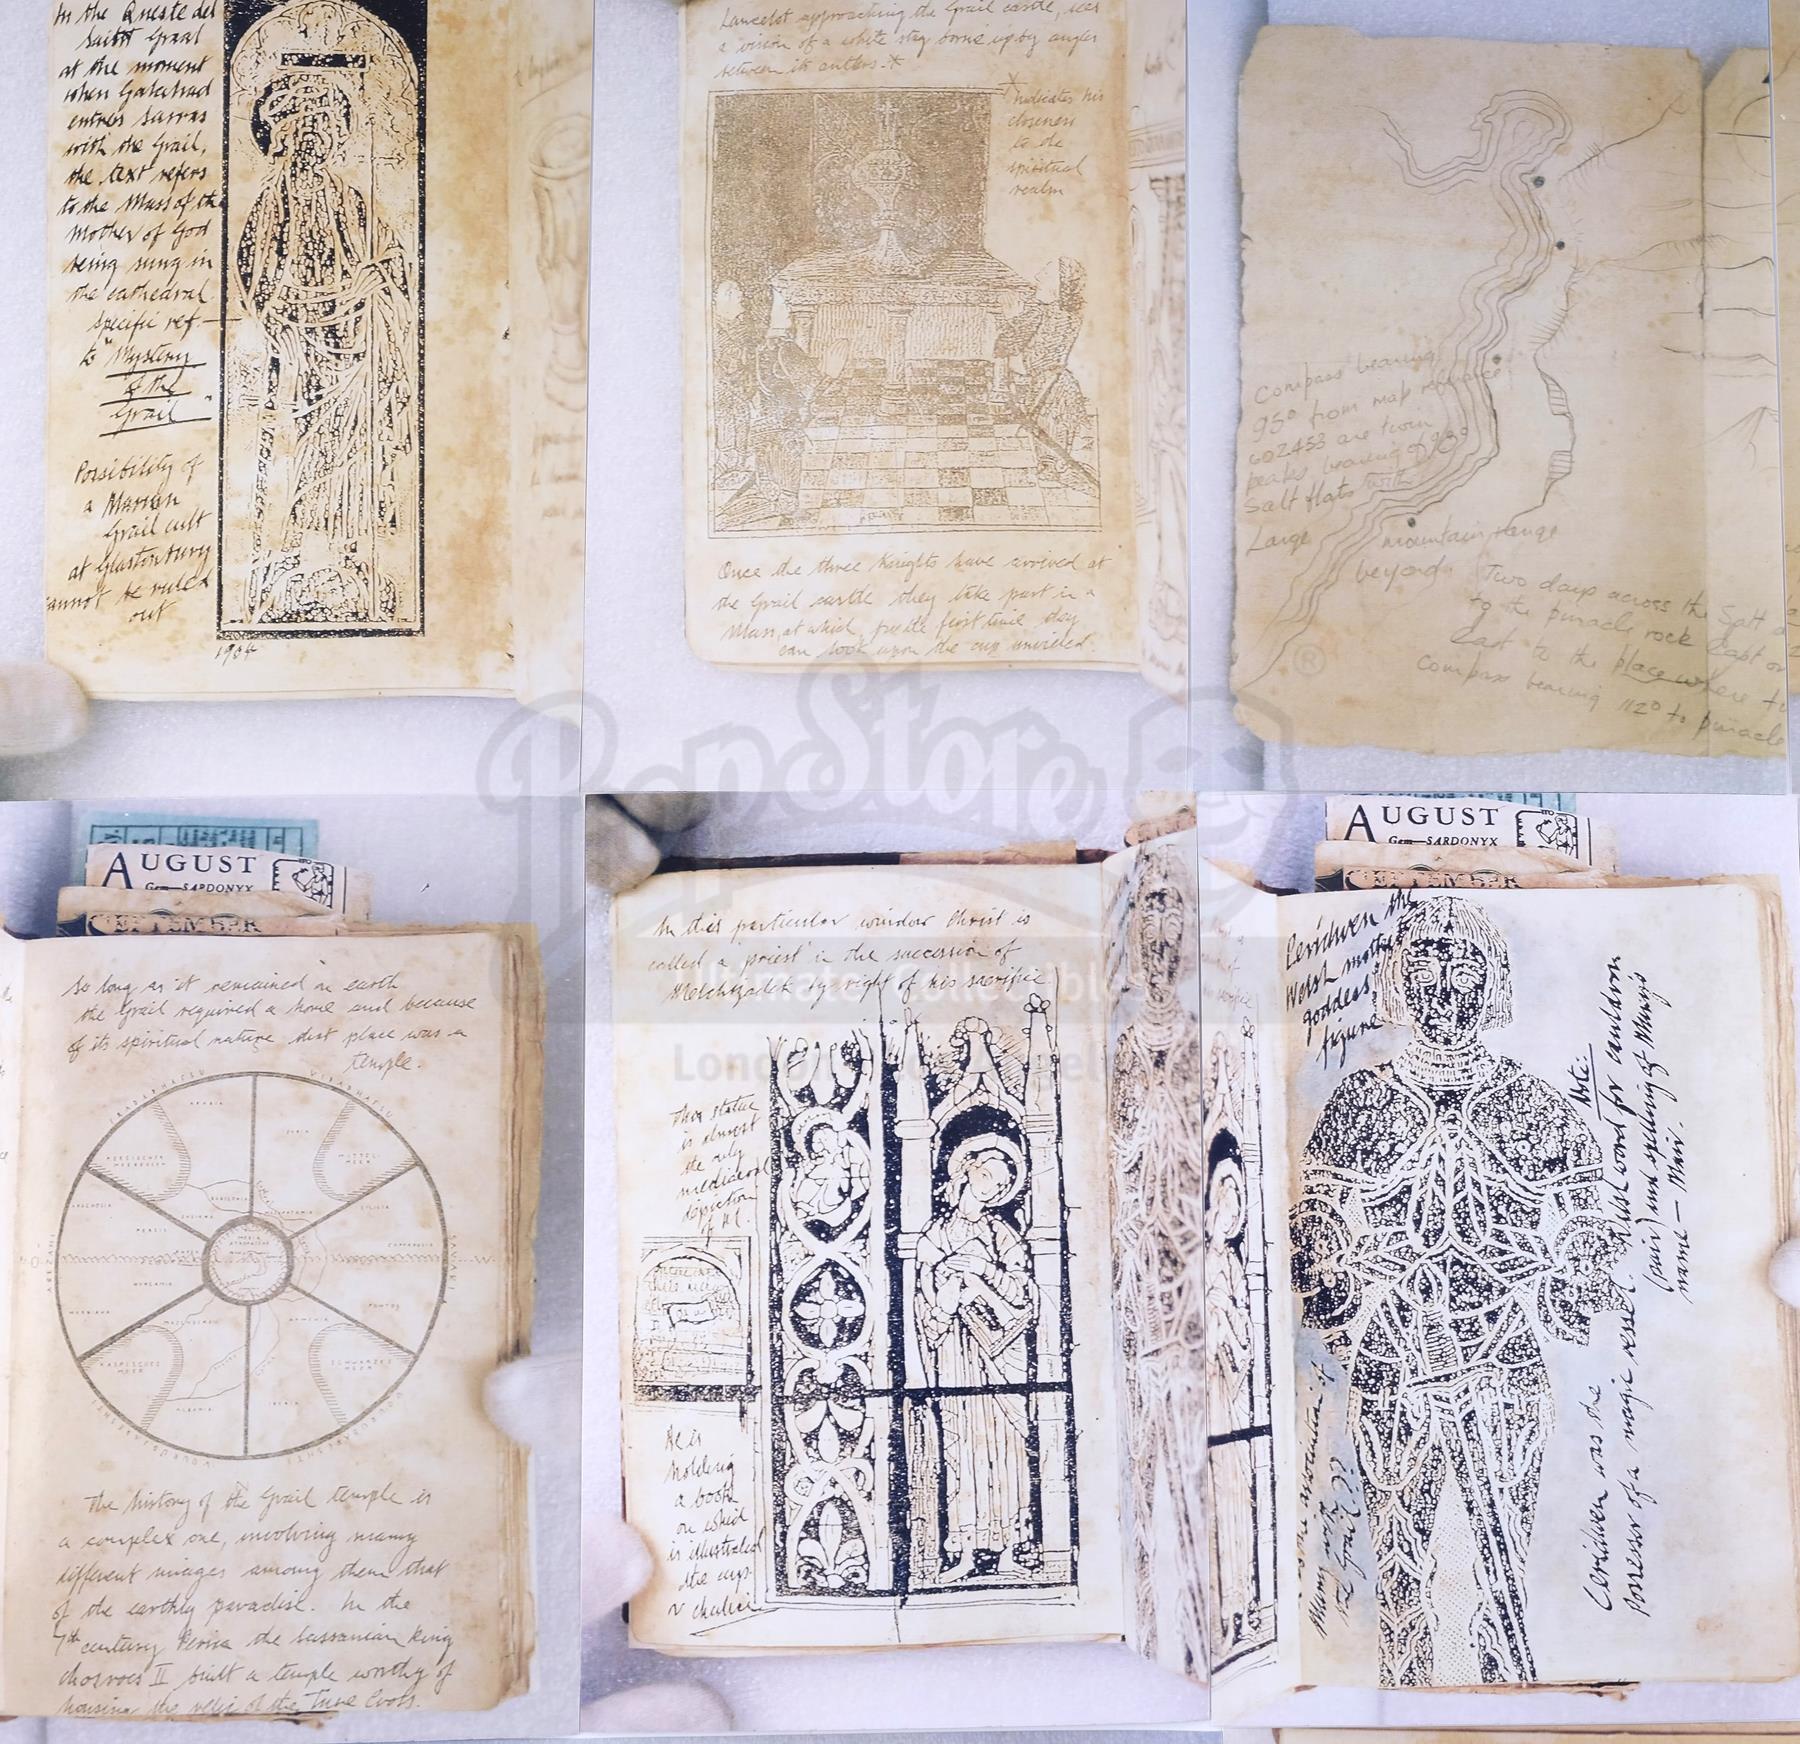 In the Queste del
Saint Graal
at the moment
when Galahad
enters Sarras
with the Grail,
the text refers
to the Mass of the
Mother of God
being sung in
the cathedral.
specific ref.
to "Mystery
of the
Grail"
Possibility of
a Marian
Grail cult
at Glastonbury
cannot be ruled
out
1904
Lancelot approaching the Grail castle, sees
a vision of a white stag borne up by angles
between its antlers.*
* Indicates his
closeness
to the
spiritual
realm
Once the three Knights have arrived at
the Grail castle they take part in a
Mass, at which, for the first time they
can look upon the cup unveiled.
Compass bearing
95° from map reference
602453 are twin
peaks bearing of 93°
Salt flats with
Large mountain range
beyond. Two days across the Salt
to the pinacle rock East or
East to the place where
Compass bearing 112° to pinacle
PropStore
®
Ultimate Collectibles
London
AUGUST
Gem—SARDONYX
SEPTEMBER
So long as it remained in earth
the Grail required a home and because
of its spiritual nature that place was a
temple.
VOURUBARESHTI
SAVAHI
AREZAHI
ARABIA
SYRIA
PERSISCHER
MEERBUSEN
MITTEL
MEER
ARACHOSIA
BABYLONIA
MESOPOTAMIA
CILICIA
PERSIS
CAPPADOCIA
HYRCANIA
PONTOS
ARMENIA
KASPISCHES
MEER
SCHWARZES
MEER
ALBANIA
IBERIA
The history of the Grail temple is
a complex one, involving many
different images among them that
of the earthly paradise. In the
7th century Persia the Sassanian King
Chosroes II built a temple worthy of
housing the relic of the True Cross.
In this particular window Christ is
called a priest in the succession of
Melchizadek by right of his sacrifice
This statue
is almost
the only
mediaeval
depiction
of
He is
holding
a book
on which
is illustrated
the cup
or chalice
AUGUST
Gem—SARDONYX
SEPTEMBER
Cerridwen the
Welsh mother
goddess
figure
Note:
Welsh word for cauldron
(pair) and spelling of Mary's
name — Mair.
Ceridwen was the
Possessor of a magic vessel.
the association of
Mary with
the Grail